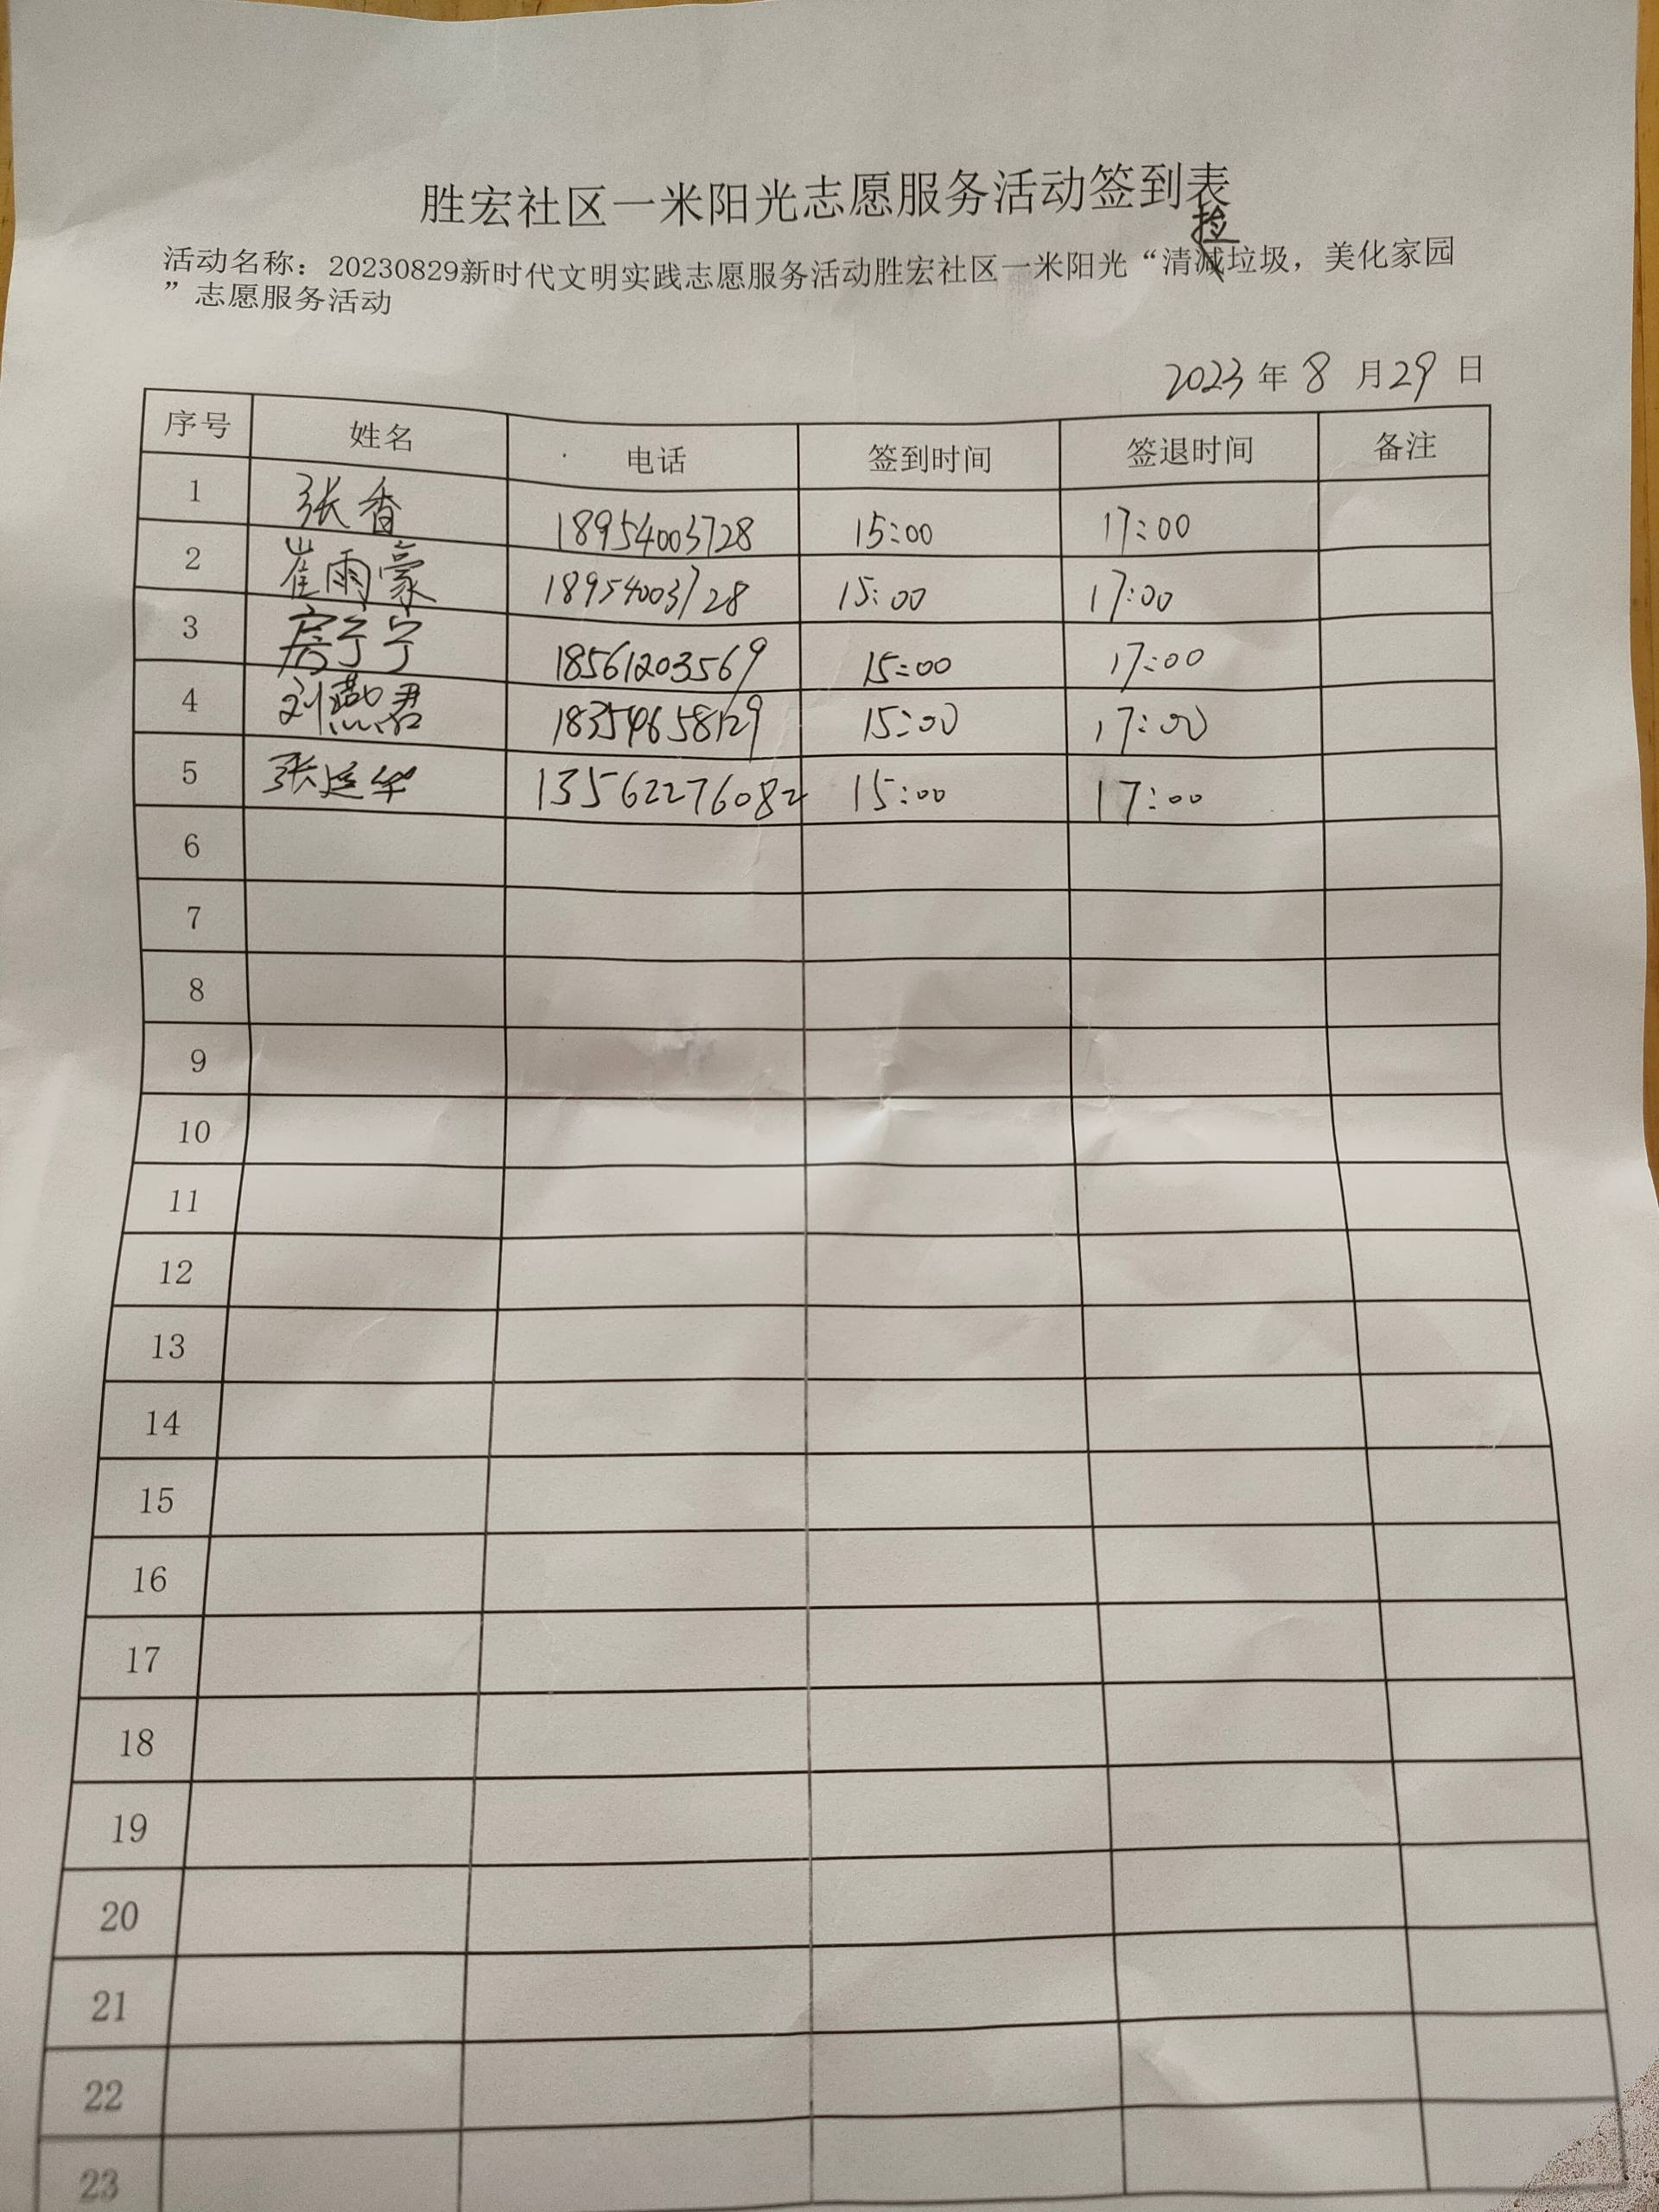 胜宏社区一米阳光志愿服务活动签到表
捡
活动名称：20230829新时代文明实践志愿服务活动胜宏社区一米阳光“清减垃圾，美化家园
”志愿服务活动
2023 年 8 月 29 日
序号 姓名 电话 签到时间 签退时间 备注
1 张香 18954003728 15:00 17:00
2 崔雨豪 18954003728 15:00 17:00
3 房宁宁 18561203569 15:00 17:00
4 刘燕君 18354658129 15:00 17:00
5 张延华 13562276082 15:00 17:00
6
7
8
9
10
11
12
13
14
15
16
17
18
19
20
21
22
23